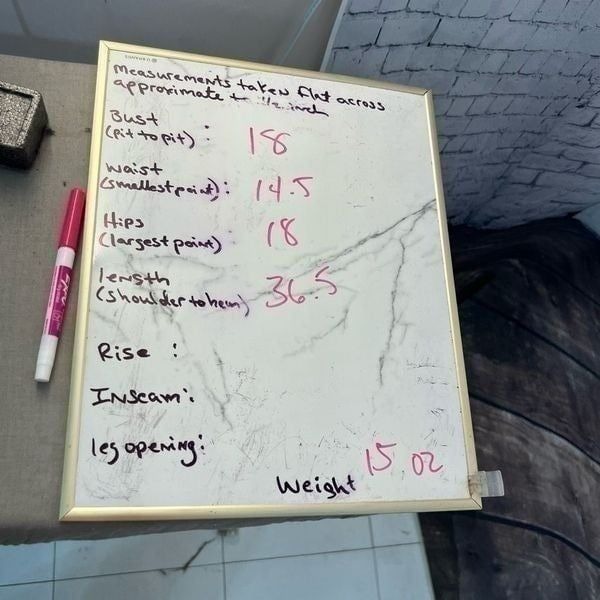 measurements taken flat across
approximate to 1/2 inch
Bust
(pit to pit) : 18
waist
(smallest point): 14.5
Hips
(largest point) 18
length
(shoulder to hem) 36.5
Rise :
Inseam:
leg opening:
Weight 15 oz